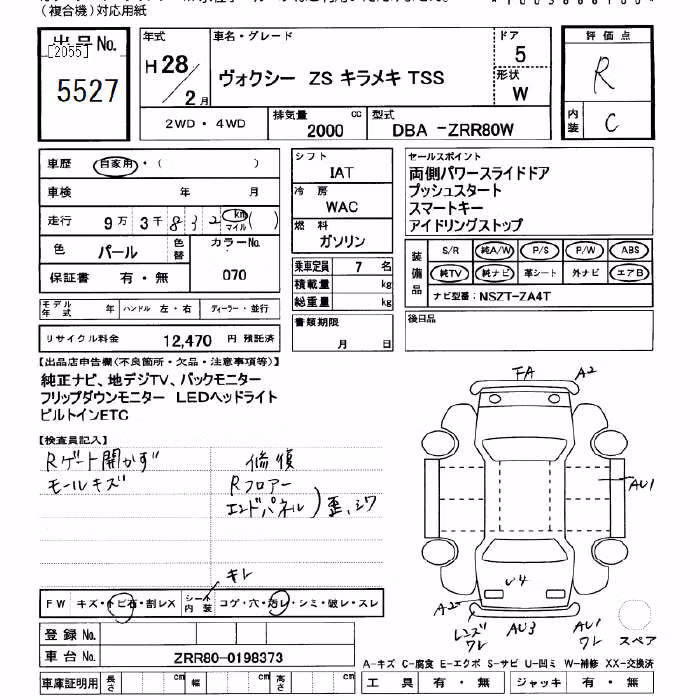 (複合機)対応用紙
出品No.
[2055]
5527
年式
H28/2月
車名・グレード
ヴォクシー ZS キラメキ TSS
ドア
5
形状
W
評価点
R
内装
C
2WD・4WD
排気量
2000 cc
型式
DBA -ZRR80W
車歴 自家用・( )
車検 年 月
走行 9万 3千 8 3 2 km マイル ( )
色 パール 色替 カラーNo.
保証書 有・無 070
モデル年式 年 ハンドル 左・右 ディーラー・並行
リサイクル料金 12,470 円 預託済
シフト
IAT
冷房
WAC
燃料
ガソリン
乗車定員 7 名
積載量 kg
総重量 kg
書類期限
月 日
セールスポイント
両側パワースライドドア
プッシュスタート
スマートキー
アイドリングストップ
装備品
S/R 純A/W P/S P/W ABS
純TV 純ナビ 革シート 外ナビ エアB
ナビ型番: NSZT-ZA4T
後日品
【出品店申告欄(不良箇所・欠品・注意事項等)】
純正ナビ、地デジTV、バックモニター
フリップダウンモニター LEDヘッドライト
ビルトインETC
【検査員記入】
Rゲート開かず
モールキズ
修復
Rフロアー
エンドパネル)歪、シワ
キレ
FW キズ・トビ石・割レX シート内装 コゲ・穴・汚レ・シミ・破レ・スレ
登録No.
車台No. ZRR80-0198373
車庫証明用 長さ cm 幅 cm 高さ cm
FA A2
AU1
U4
A2
レンズワレ
AU3
AU1
ワレ
スペア
A-キズ C-腐食 E-エクボ S-サビ U-凹ミ W-補修 XX-交換済
工具 有・無 ジャッキ 有・無